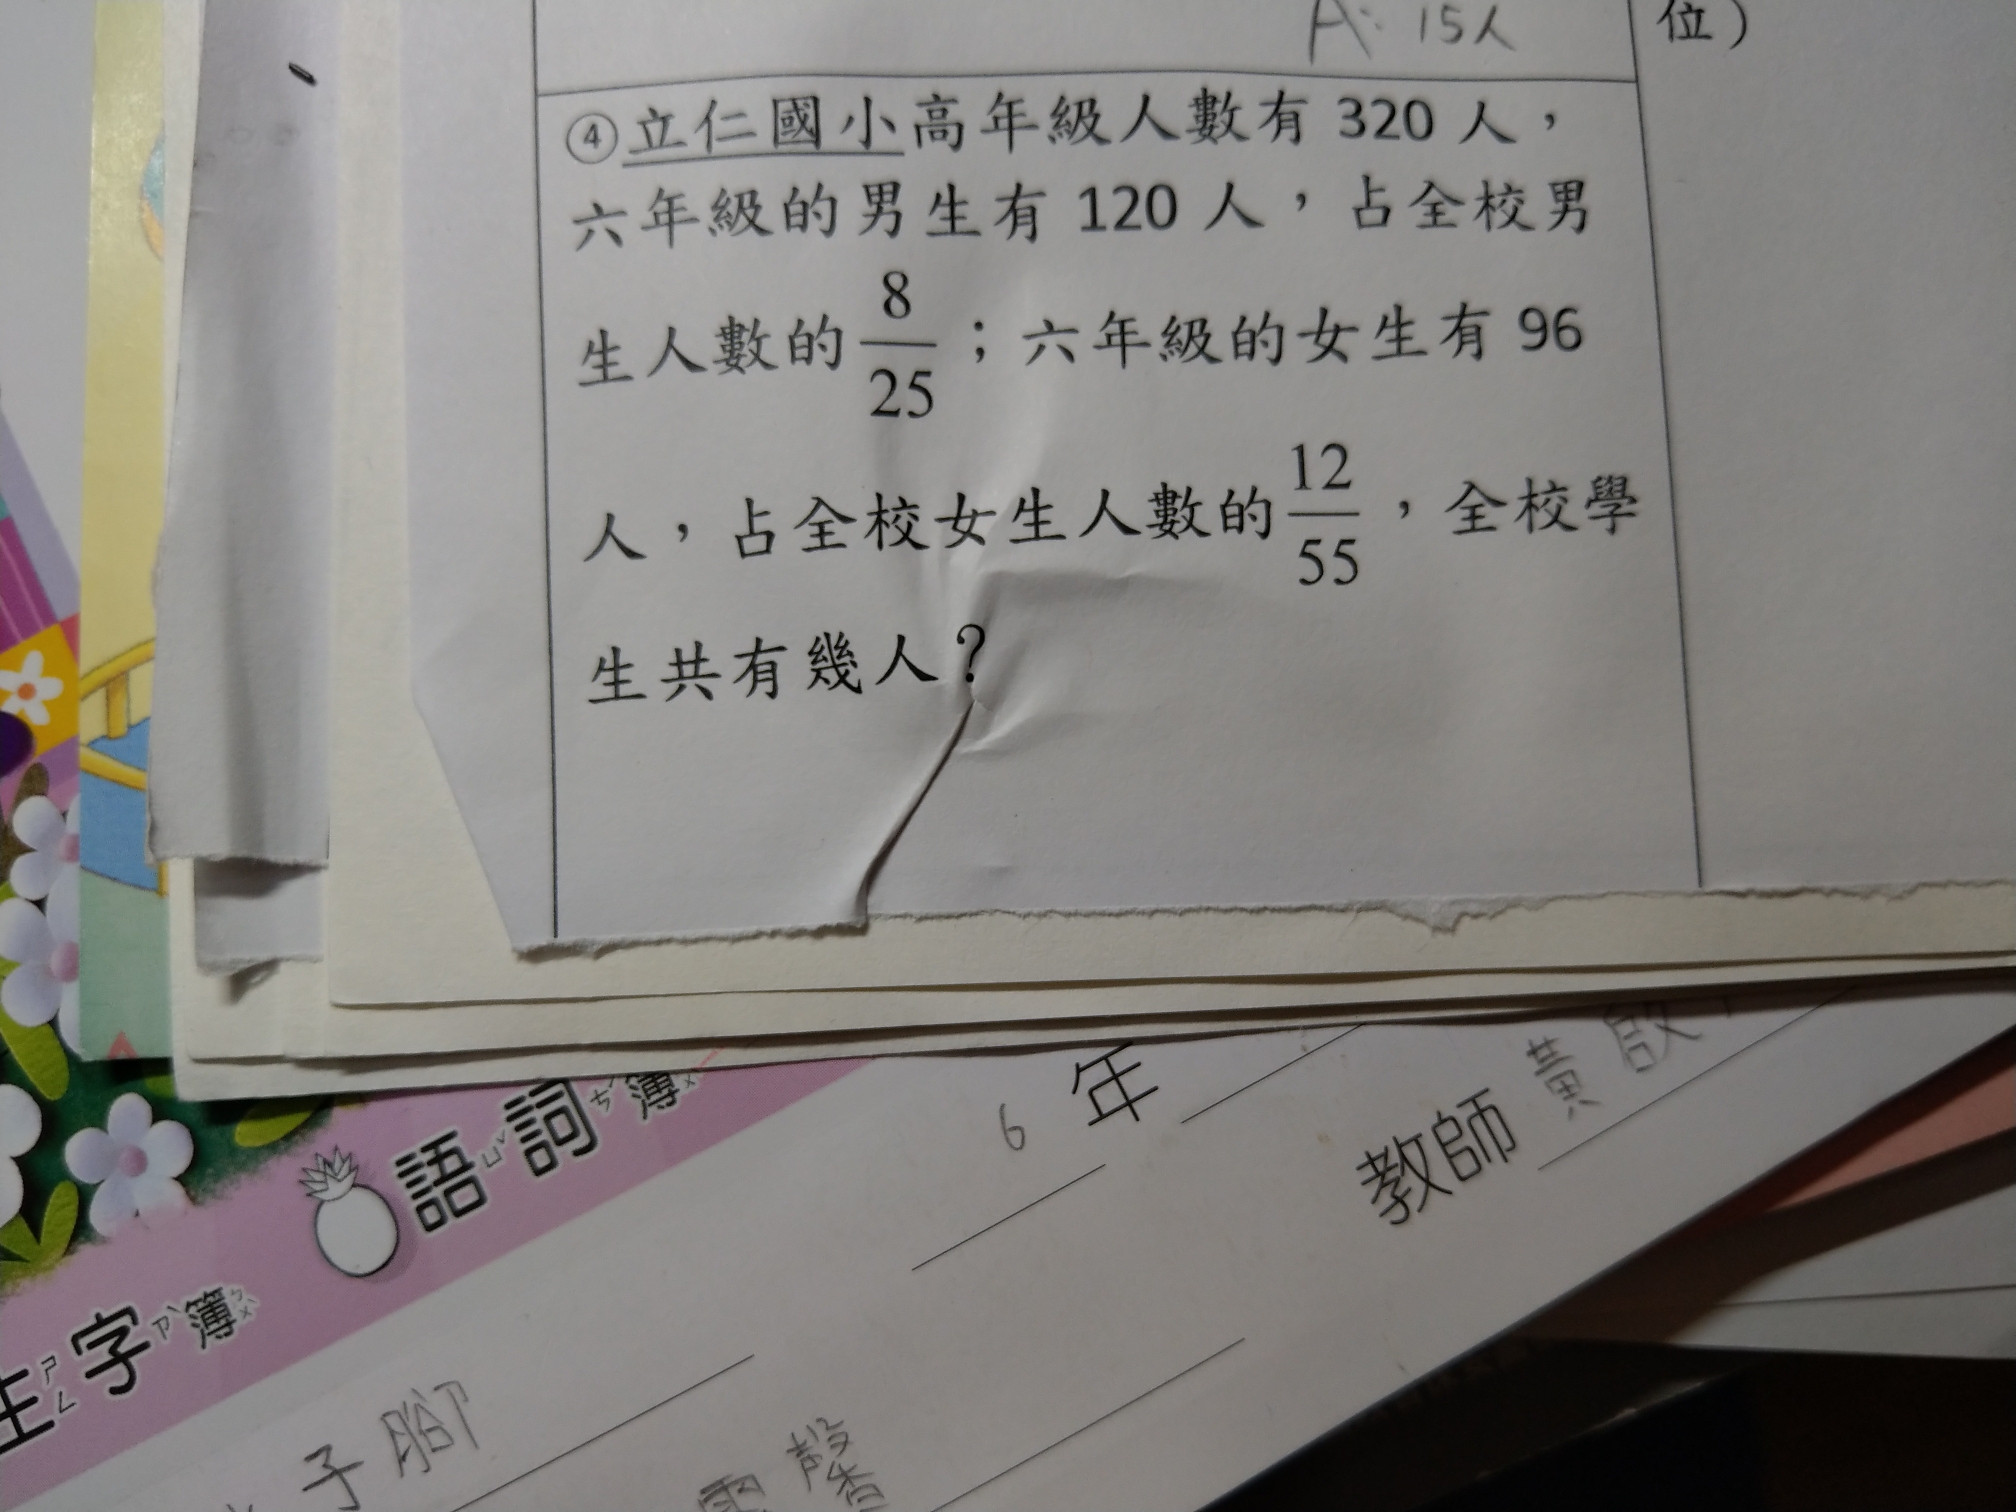 A: 15人
位)
④立仁國小高年級人數有 320 人，
六年級的男生有 120 人，占全校男
生人數的8/25；六年級的女生有 96
人，占全校女生人數的12/55，全校學
生共有幾人？
6 年
教師 黃啟
語詞簿
生字簿
子腳
馨